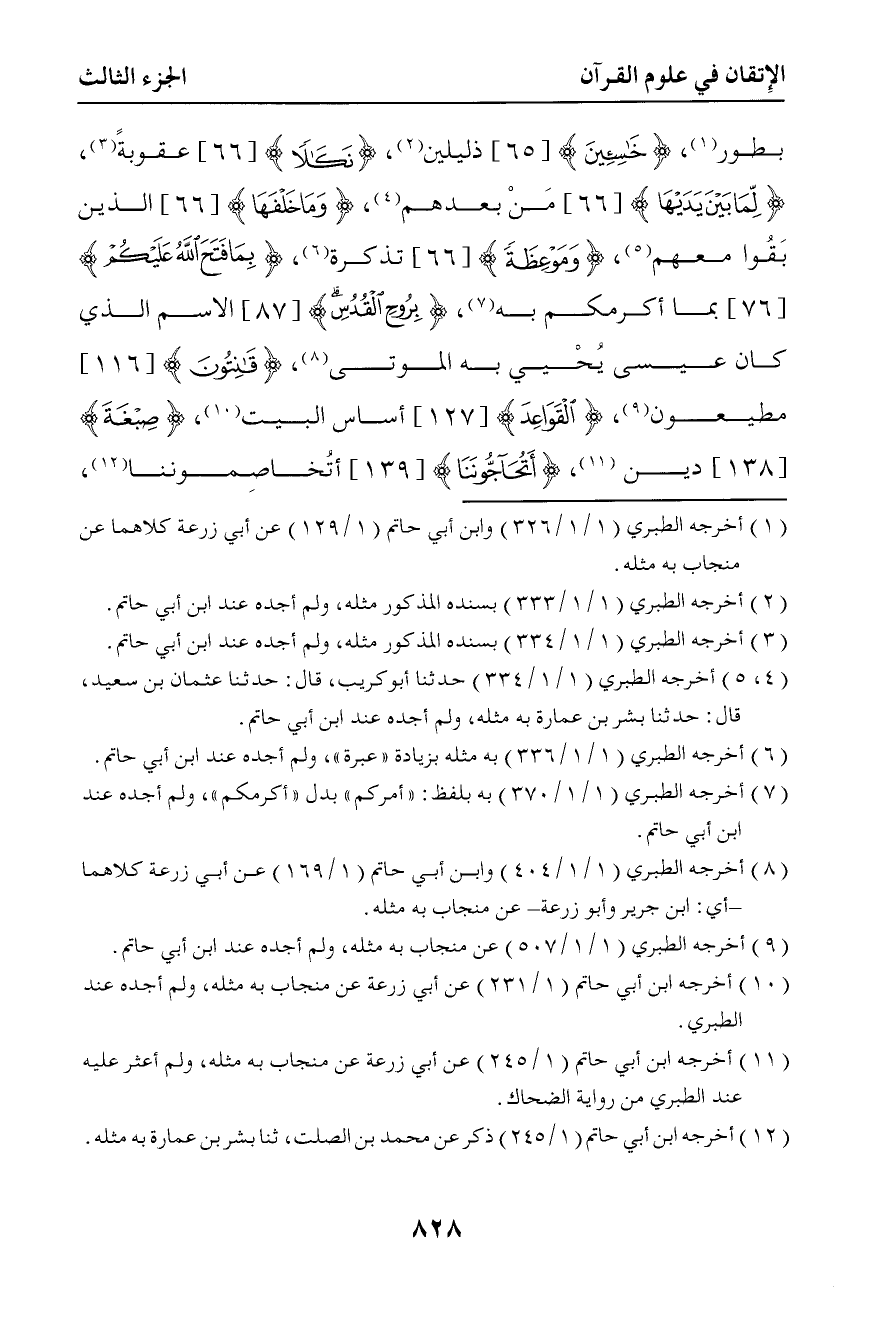 الإتقان في علوم القرآن
الجزء الثالث
بطور(١)، ﴿ خَٰسِـِٔينَ ﴾ [٦٥] ذليلين(٢)، ﴿ نَكَٰلًا ﴾ [٦٦] عقوبةً(٣)،
﴿ لِّمَا بَيْنَ يَدَيْهَا ﴾ [٦٦] مَنْ بعدهم(٤)، ﴿ وَمَا خَلْفَهَا ﴾ [٦٦] الذين
بَقُوا معهم(٥)، ﴿ وَمَوْعِظَةً ﴾ [٦٦] تذكرة(٦)، ﴿ بِمَا فَتَحَ ٱللَّهُ عَلَيْكُمْ ﴾
[٧٦] بما أكرمكم به(٧)، ﴿ بِرُوحِ ٱلْقُدُسِ ۗ ﴾ [٨٧] الاسم الذي
كان عيسى يُحْيي به الموتى(٨)، ﴿ قَٰنِتُونَ ﴾ [١١٦]
مطيعون(٩)، ﴿ ٱلْقَوَاعِدَ ﴾ [١٢٧] أساس البيت(١٠)، ﴿ صِبْغَةَ ﴾
[١٣٨] دين (١١)، ﴿ أَتُحَآجُّونَنَا ﴾ [١٣٩] أتُخاصِموننا(١٢)،
(١) أخرجه الطبري (١/١/٣٢٦) وابن أبي حاتم (١/١٢٩) عن أبي زرعة كلاهما عن
منجاب به مثله.
(٢) أخرجه الطبري (١/١/٣٣٣) بسنده المذكور مثله، ولم أجده عند ابن أبي حاتم.
(٣) أخرجه الطبري (١/١/٣٣٤) بسنده المذكور مثله، ولم أجده عند ابن أبي حاتم.
(٤، ٥) أخرجه الطبري (١/١/٣٣٤) حدثنا أبو كريب، قال: حدثنا عثمان بن سعيد،
قال: حدثنا بشر بن عمارة به مثله، ولم أجده عند ابن أبي حاتم.
(٦) أخرجه الطبري (١/١/٣٣٦) به مثله بزيادة «عبرة»، ولم أجده عند ابن أبي حاتم.
(٧) أخرجه الطبري (١/١/٣٧٠) به بلفظ: «أمركم» بدل «أكرمكم»، ولم أجده عند
ابن أبي حاتم.
(٨) أخرجه الطبري (١/١/٤٠٤) وابن أبي حاتم (١/١٦٩) عن أبي زرعة كلاهما
–أي: ابن جرير وأبو زرعة– عن منجاب به مثله.
(٩) أخرجه الطبري (١/١/٥٠٧) عن منجاب به مثله، ولم أجده عند ابن أبي حاتم.
(١٠) أخرجه ابن أبي حاتم (١/٢٣١) عن أبي زرعة عن منجاب به مثله، ولم أجده عند
الطبري.
(١١) أخرجه ابن أبي حاتم (١/٢٤٥) عن أبي زرعة عن منجاب به مثله، ولم أعثر عليه
عند الطبري من رواية الضحاك.
(١٢) أخرجه ابن أبي حاتم (١/٢٤٥) ذكر عن محمد بن الصلت، ثنا بشر بن عمارة به مثله.
٨٢٨